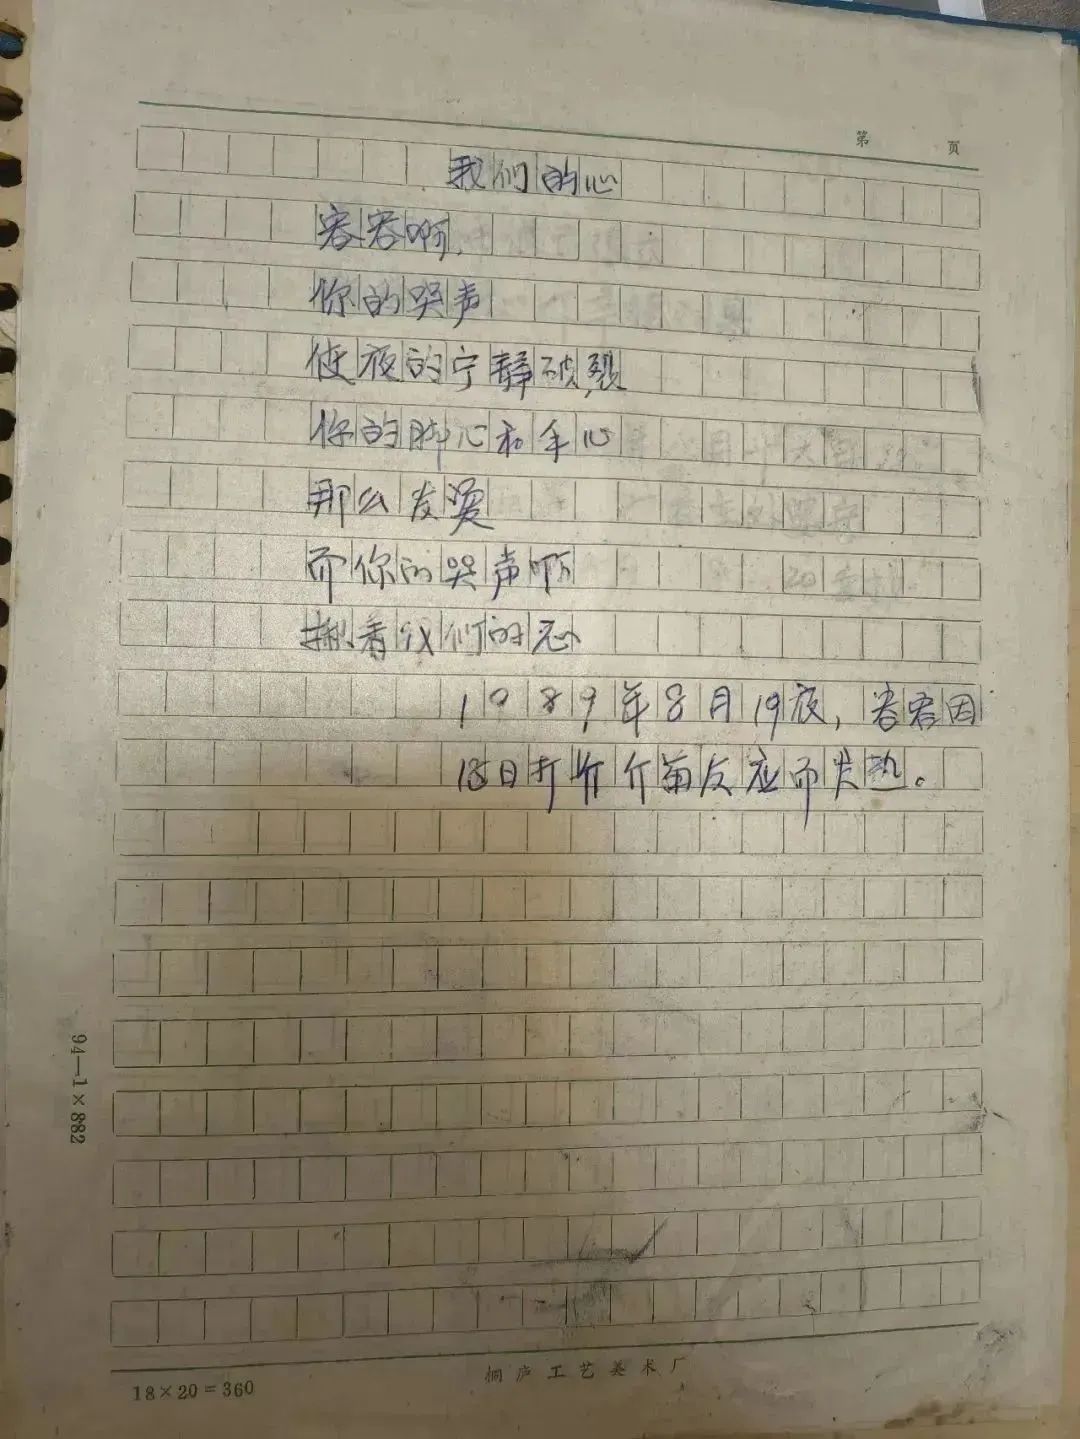 第 页
我们的心
容容啊,
你的哭声
使夜的宁静破裂
你的脚心和手心
那么发烫
而你的哭声啊
揪着我们的心
1989年8月19夜,容容因
18日打 苗反应而发热。
94—1×882
18×20=360
桐庐工艺美术厂